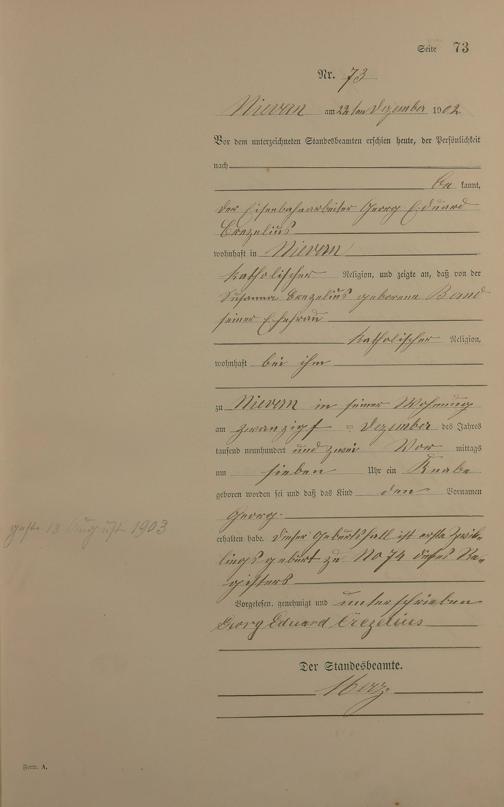 Seite 73
Nr. 73
Nievern am 22 ten Dezember 1902
Vor dem unterzeichneten Standesbeamten erschien heute, der Persönlichkeit
nach
be kannt,
der Eisenbahnarbeiter Georg Eduard
Crezelius
wohnhaft in Nievern
katholischer Religion, und zeigte an, daß von der
Susanna Crezelius geborene
seiner Ehefrau
katholischer Religion,
wohnhaft bei ihm
zu Nievern in seiner Wohnung
am zwanzigst = Dezember des Jahres
tausend neunhundert und zwei Vor mittags
um sieben Uhr ein Knabe
geboren worden sei und daß das Kind den Vornamen
Georg
erhalten habe. Dieser Geburtsfall ist erste Zwil-
lingsgeburt zu No 74 dieses Re-
gisters
Vorgelesen, genehmigt und unterschrieben
Georg Eduard Crezelius
Der Standesbeamte.
gest. 13 August 1903
Form. A.